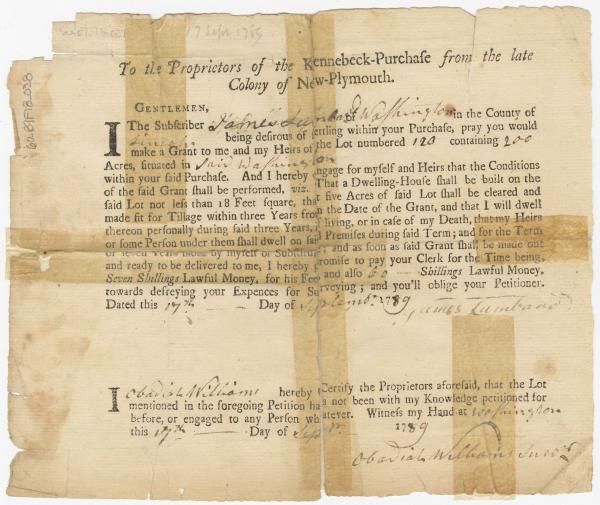 17 Sepr 1789
To the Proprietors of the Kennebeck-Purchase from the late
Colony of New-Plymouth.
GENTLEMEN,
The Subscriber James Lumbard of Washington in the County of
Lincoln being desirous of settling within your Purchase, pray you would
make a Grant to me and my Heirs of the Lot numbered 120 containing 200
Acres, situated in said Washington
within your said Purchase. And I hereby engage for myself and Heirs that the Conditions
of the said Grant shall be performed, viz. That a Dwelling-House shall be built on the
said Lot not less than 18 Feet square, that five Acres of said Lot shall be cleared and
made fit for Tillage within three Years from the Date of the Grant, and that I will dwell
thereon personally during said three Years, if living, or in case of my Death, that my Heirs
or some Person under them shall dwell on said Premises during said Term; and for the Term
of seven Years more by myself or Substitute; and as soon as said Grant shall be made out
and ready to be delivered to me, I hereby promise to pay your Clerk for the Time being,
Seven Shillings Lawful Money, for his Fee, and also 60 Shillings Lawful Money,
towards defreying your Expences for Surveying; and you'll oblige your Petitioner.
Dated this 17th Day of September 1789
James Lumbard
I Obadiah Williams hereby Certify the Proprietors aforesaid, that the Lot
mentioned in the foregoing Petition has not been with my Knowledge petitioned for
before, or engaged to any Person whatever. Witness my Hand at Washington
this 17th Day of Sepr 1789
Obadiah Williams